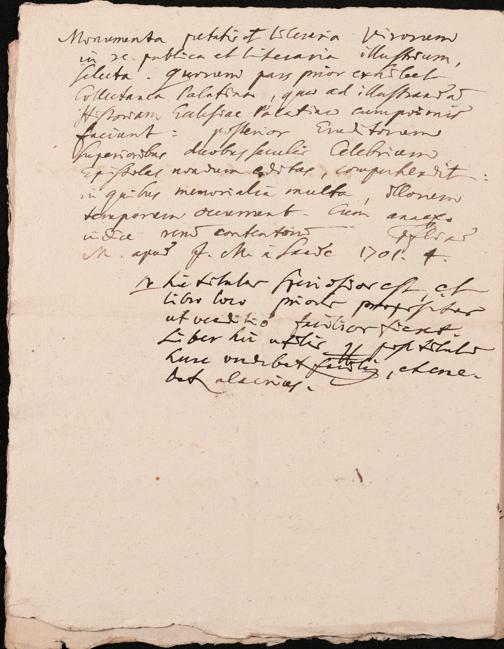 Monumenta pietatis et Literaria Virorum
in re publica et Literaria illustrium,
selecta. quorum pars prior exhibet
Collectanea Palatina, quae ad illustrandā
Historiam Ecclesiae Palatinae cumprimis
faciunt: posterior Eruditorum
superioribus duobus seculis Celebrium
Epistolas nondum editas, comprehendit:
in quibus memorabilia multa, illorum
temporum occurrunt. Cum annexo
indice rerū contentarū
M. apud J. M. a Sande 1701. 4.
hic titulus speciosior est, et
libro loco prioris
ut venditio facilior fieret.
Liber hic utilis
hunc vendebat, et
bat alacrius.